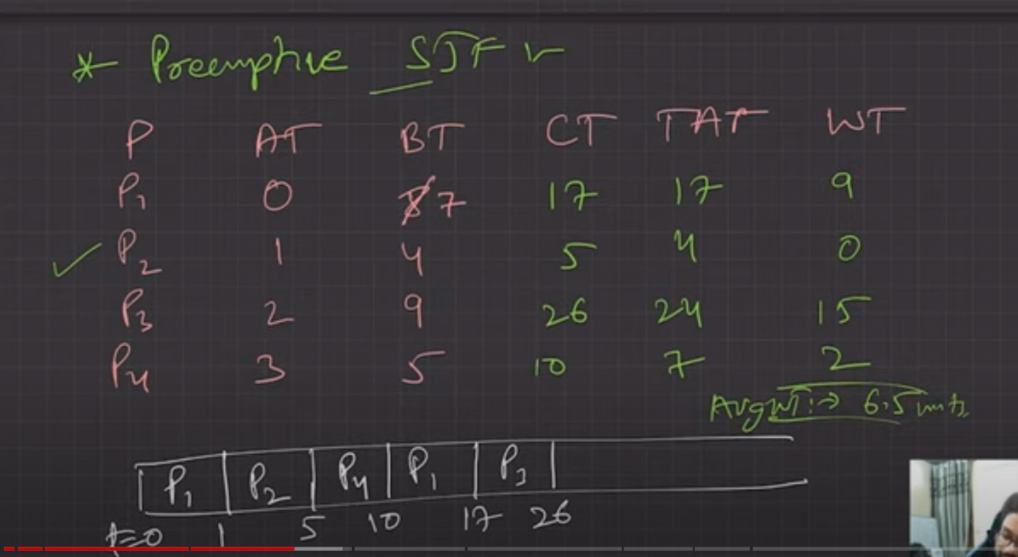 * Preemptive SJF
P AT BT CT TAT WT
P1 0 8 7 17 17 9
P2 1 4 5 4 0
P3 2 9 26 24 15
P4 3 5 10 7 2
Avg WT :→ 6.5 units
P1 P2 P4 P1 P3
t=0 1 5 10 17 26